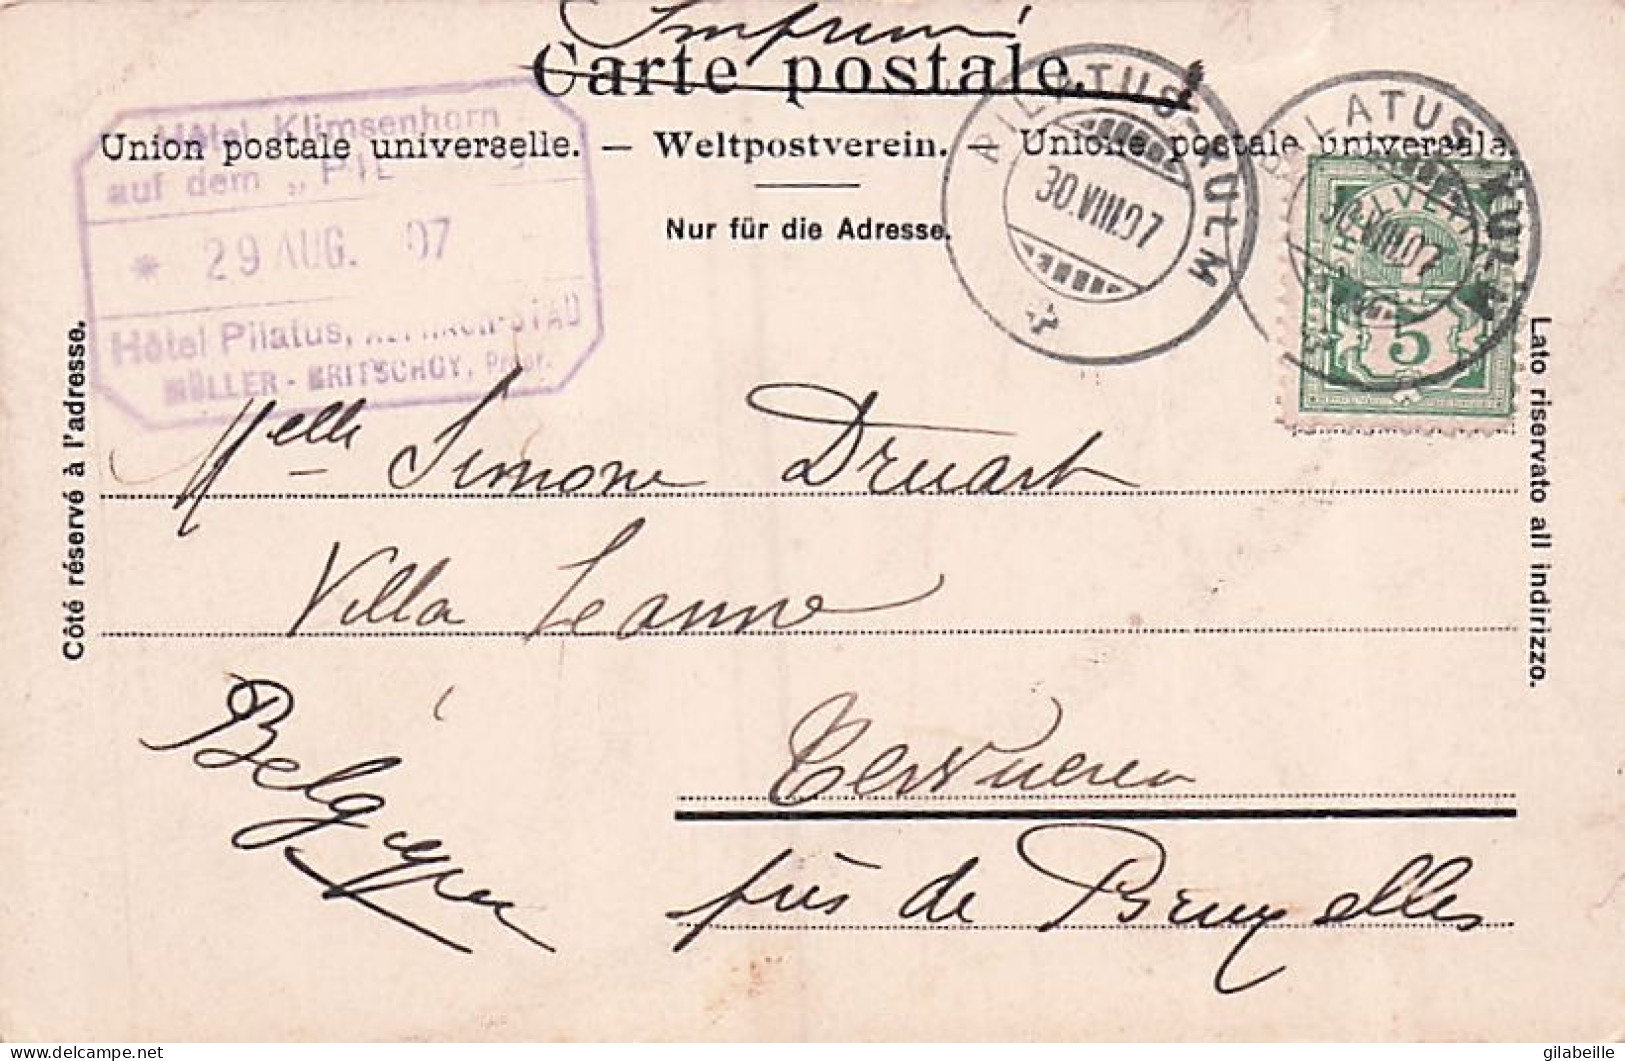 Imprimé
Carte postale.
Union postale universelle. — Weltpostverein. — Unione postale universale.
Nur für die Adresse.
Hôtel Klimsenhorn
auf dem „PIL
* 29 AUG. 07
Hôtel Pilatus, ALPNACH-STAD
MÜLLER - BRITSCHGY, Propr.
PILATUS-KULM
30.VIII.07
PILATUS-KULM
30.VIII.07
HELVETIA
5
Côté réservé à l'adresse.
Lato riservato all indirizzo.
Melle Simone Druart
Villa Jeanne
Tervueren
près de Bruxelles
Belgique
delcampe.net
gilabeille